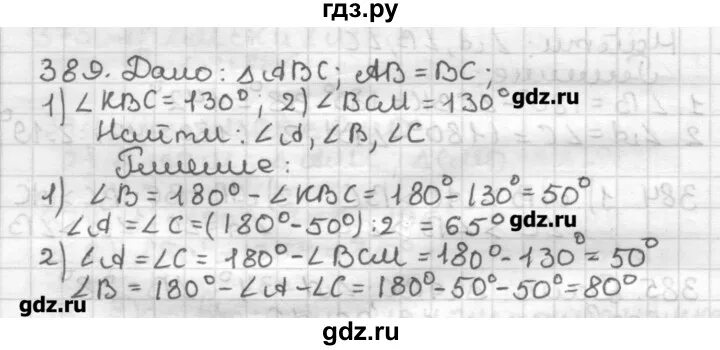 гдз.ру
389. Дано: △ABC; AB = BC;
1) ∠KBC = 130°; 2) ∠BCM = 130°
gdz.ru
Найти: ∠A, ∠B, ∠C
Решение:
1) ∠B = 180° - ∠KBC = 180° - 130° = 50°
∠A = ∠C = (180° - 50°) : 2 = 65°
gdz.ru
2) ∠A = ∠C = 180° - ∠BCM = 180° - 130° = 50°
∠B = 180° - ∠A - ∠C = 180° - 50° - 50° = 80°
gdz.ru
gdz.ru
gdz.ru